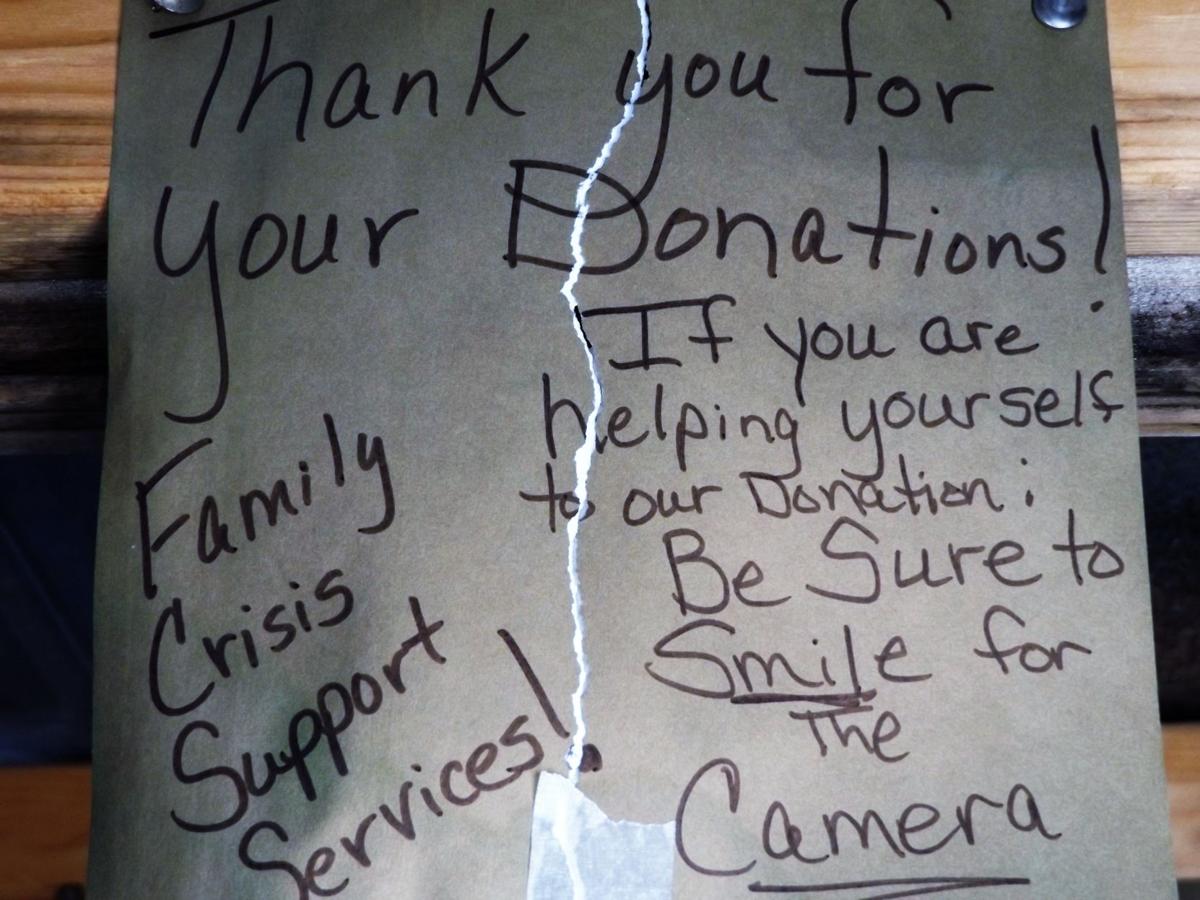 Thank you for
your Donations!
If you are
helping yourself
to our Donation:
Be Sure to
Smile for
The
Camera
Family
Crisis
Support
Services!